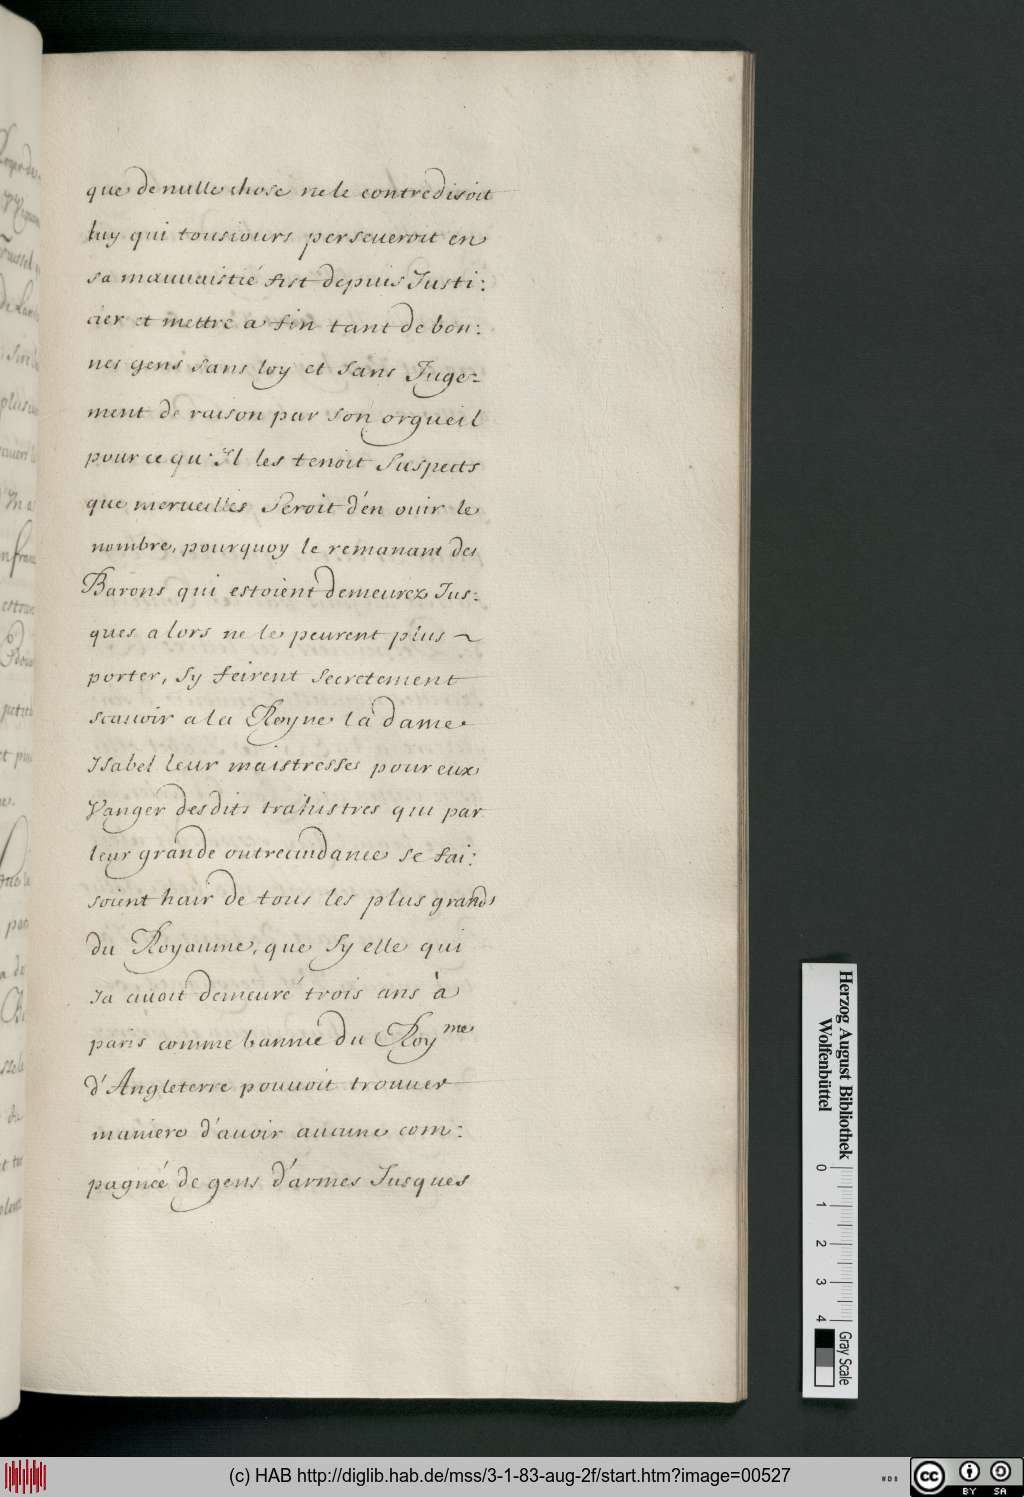 que de nulle chose ne le contredisoit
luy qui tousiours perseueroit en
sa mauuaistié fist depuis Justi:
cier et mettre a fin tant de bon:
nes gens sans loy et sans Juge-
ment de raison par son orgueil
pour ce qu'Il les tenoit Suspects
que merueilles Seroit d'en ouir le
nombre, pourquoy le remanant des
Barons qui estoient demeurez Jus:
ques alors ne le peurent plus ~
porter, sy feirent secretement
scauoir a la Royne la dame
Isabel leur maistresse pour eux
Vanger desdits trahistres qui par
leur grande outrecuidance se fai:
soient hair de tous les plus grands
du Royaume, que sy elle qui
Ja auoit demeuré trois ans à
paris comme bannie du Roy<sup>me</sup>
d'Angleterre pouuoit trouuer
maniere d'auoir aucune com:
pagneé de gens d'armes Jusques
Herzog August Bibliothek
Wolfenbüttel
0 1 2 3 4
Gray Scale
(c) HAB http://diglib.hab.de/mss/3-1-83-aug-2f/start.htm?image=00527
cc BY SA